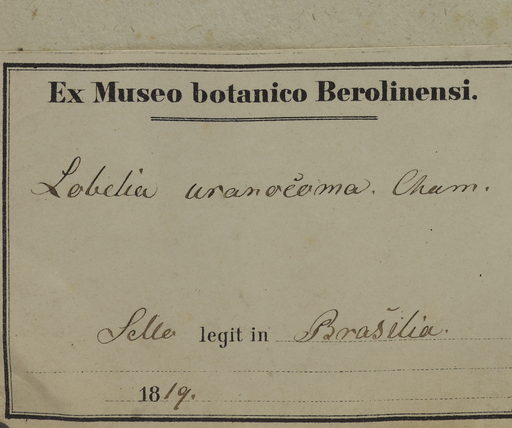 Ex Museo botanico Berolinensi.
Lobelia uranočoma. Cham.
Sello legit in Brašilia.
1819.